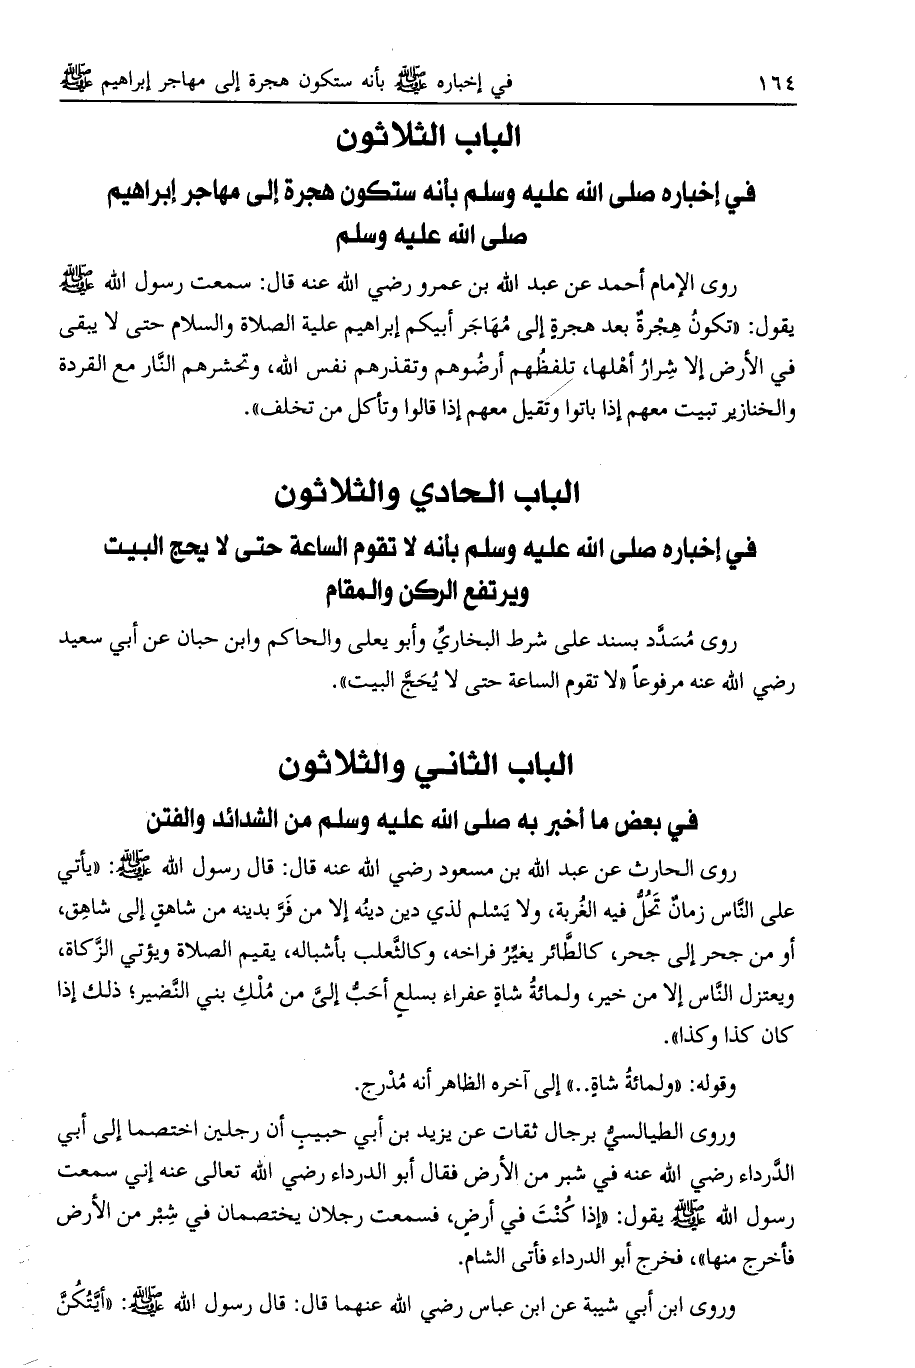 ١٦٤ في إخباره ﷺ بأنه ستكون هجرة إلى مهاجر إبراهيم ﷺ
الباب الثلاثون
في إخباره صلى الله عليه وسلم بأنه ستكون هجرة إلى مهاجر إبراهيم
صلى الله عليه وسلم
روى الإمام أحمد عن عبد الله بن عمرو رضي الله عنه قال: سمعت رسول الله ﷺ
يقول: «تكونُ هِجْرةٌ بعد هجرةٍ إلى مُهَاجَر أبيكم إبراهيم علية الصلاة والسلام حتى لا يبقى
في الأرض إلا شِرارُ أهْلها، تلفظُهم أرضُوهم وتقذرهم نفس الله، وتحشرهم النَّار مع القردة
والخنازير تبيت معهم إذا باتوا وتَقيل معهم إذا قالوا وتأكل من تخلف».
الباب الحادي والثلاثون
في إخباره صلى الله عليه وسلم بأنه لا تقوم الساعة حتى لا يحج البيت
ويرتفع الركن والمقام
روى مُسَدَّد بسند على شرط البخاريِّ وأبو يعلى والحاكم وابن حبان عن أبي سعيد
رضي الله عنه مرفوعاً «لا تقوم الساعة حتى لا يُحَجَّ البيت».
الباب الثاني والثلاثون
في بعض ما أخبر به صلى الله عليه وسلم من الشدائد والفتن
روى الحارث عن عبد الله بن مسعود رضي الله عنه قال: قال رسول الله ﷺ: «يأتي
على النَّاس زمانٌ تَحُلُّ فيه الغُربة، ولا يَسْلم لذي دين دينُه إلا من فَرَّ بدينه من شاهقٍ إلى شاهِق،
أو من جحر إلى جحر، كالطَّائر يغيِّرُ فراخه، وكالثَّعلب بأشباله، يقيم الصلاة ويؤتي الزَّكاة،
ويعتزل النَّاس إلا من خير، ولمائةُ شاةٍ عفراء بسلعٍ أحَبُّ إليَّ من مُلْكِ بني النَّضير؛ ذلك إذا
كان كذا وكذا».
وقوله: «ولمائةُ شاةٍ..» إلى آخره الظاهر أنه مُدْرج.
وروى الطيالسيُّ برجال ثقات عن يزيد بن أبي حبيبٍ أن رجلين اختصما إلى أبي
الدَّرداء رضي الله عنه في شبر من الأرض فقال أبو الدرداء رضي الله تعالى عنه إني سمعت
رسول الله ﷺ يقول: «إذا كُنْتَ في أرضٍ، فسمعت رجلان يختصمان في شِبْر من الأرض
فأخرج منها»، فخرج أبو الدرداء فأتى الشام.
وروى ابن أبي شيبة عن ابن عباس رضي الله عنهما قال: قال رسول الله ﷺ: «أيَّتُكُنَّ